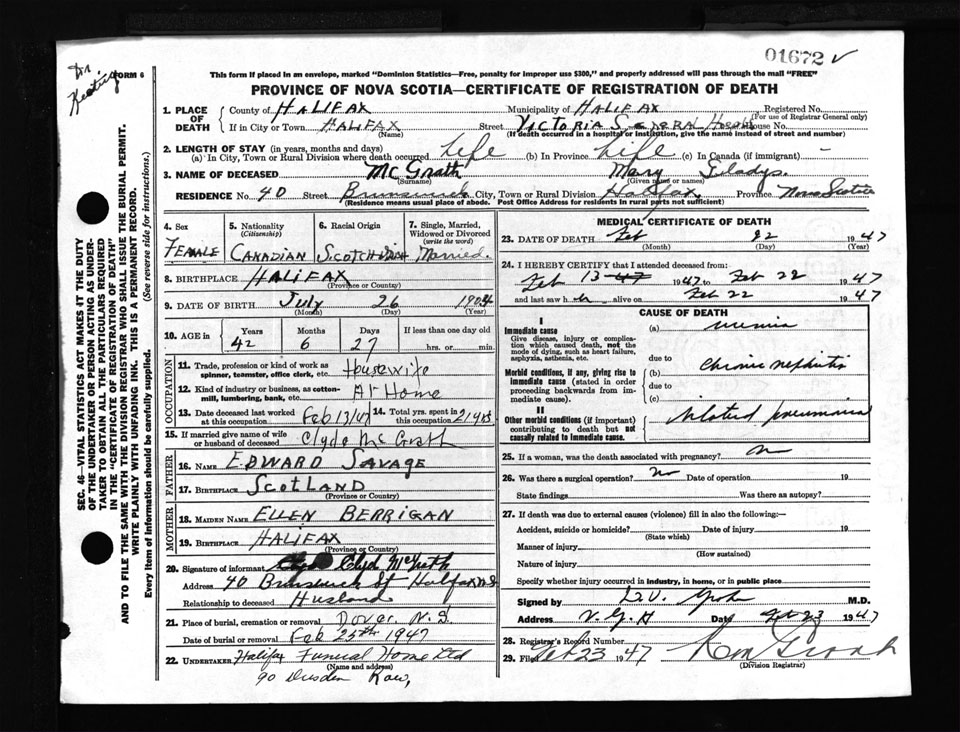 01672
Dr. Keating
FORM 6
This form if placed in an envelope, marked "Dominion Statistics—Free, penalty for improper use $300," and properly addressed will pass through the mail "FREE"
PROVINCE OF NOVA SCOTIA—CERTIFICATE OF REGISTRATION OF DEATH
SEC. 46—VITAL STATISTICS ACT MAKES IT THE DUTY
OF THE UNDERTAKER OR PERSON ACTING AS UNDER-
TAKER TO OBTAIN ALL THE PARTICULARS REQUIRED
IN THE "CERTIFICATE OF REGISTRATION OF DEATH"
AND TO FILE THE SAME WITH THE DIVISION REGISTRAR WHO SHALL ISSUE THE BURIAL PERMIT.
WRITE PLAINLY WITH UNFADING INK. THIS IS A PERMANENT RECORD.
Every item of information should be carefully supplied. (See reverse side for instructions.)
1. PLACE OF DEATH
County of HALIFAX Municipality of HALIFAX Registered No.
(For use of Registrar General only)
If in City or Town HALIFAX Street VICTORIA GENERAL House No.
(Name) (If death occurred in a hospital or institution, give the name instead of street and number)
2. LENGTH OF STAY (in years, months and days)
(a) In City, Town or Rural Division where death occurred Life (b) In Province Life (c) In Canada (if immigrant) –
3. NAME OF DECEASED McGrath Mary Gladys.
(Surname) (Given name or names)
RESIDENCE No. 40 Street Brunswick City, Town or Rural Division Halifax Province Nova Scotia
(Residence means usual place of abode. Post Office Address for residents in rural parts not sufficient)
4. Sex FEMALE
5. Nationality (Citizenship) CANADIAN
6. Racial Origin SCOTCH IRISH
7. Single, Married, Widowed or Divorced (write the word) Married.
8. BIRTHPLACE HALIFAX
(Province or Country)
9. DATE OF BIRTH July 26 1904
(Month) (Day) (Year)
10. AGE in Years Months Days If less than one day old
42 6 27 hrs. or min.
OCCUPATION
11. Trade, profession or kind of work as spinner, teamster, office clerk, etc. Housewife
12. Kind of industry or business, as cotton-mill, lumbering, bank, etc. At Home
13. Date deceased last worked at this occupation Feb 13/47
14. Total yrs. spent in this occupation 21 yrs.
15. If married give name of wife or husband of deceased Clyde McGrath
FATHER
16. NAME EDWARD SAVAGE
17. BIRTHPLACE SCOTLAND
(Province or Country)
MOTHER
18. MAIDEN NAME ELLEN BERRIGAN
19. BIRTHPLACE HALIFAX
(Province or Country)
20. Signature of informant Clyd McGrath
Address 40 Brunswick St Halifax N.S.
Relationship to deceased Husband
21. Place of burial, cremation or removal Dover. N.S.
Date of burial or removal Feb 25th 1947
22. UNDERTAKER Halifax Funeral Home Ltd
(Name and address)
90 Dresden Row,
MEDICAL CERTIFICATE OF DEATH
23. DATE OF DEATH Feb 22 1947
(Month) (Day) (Year)
24. I HEREBY CERTIFY that I attended deceased from:
Feb 13 47 1947 to Feb 22 1947
and last saw her alive on Feb 22 1947
CAUSE OF DEATH
I
Immediate cause
Give disease, injury or complication which caused death, not the mode of dying, such as heart failure, asphyxia, asthenia, etc.
(a) uremia
due to
Morbid conditions, if any, giving rise to immediate cause (stated in order proceeding backwards from immediate cause).
(b) Chronic nephritis
due to
(c)
II
Other morbid conditions (if important) contributing to death but not causally related to immediate cause.
bilateral pneumonia
25. If a woman, was the death associated with pregnancy? no
26. Was there a surgical operation? no Date of operation 19
State findings Was there autopsy?
27. If death was due to external causes (violence) fill in also the following:—
Accident, suicide or homicide? Date of injury 19
(State which)
Manner of injury
(How sustained)
Nature of injury
Specify whether injury occurred in industry, in home, or in public place
Signed by M.D.
Address V.G.H Date Feb 23 1947
28. Registrar's Record Number
29. Filed Feb 23 1947
(Division Registrar)